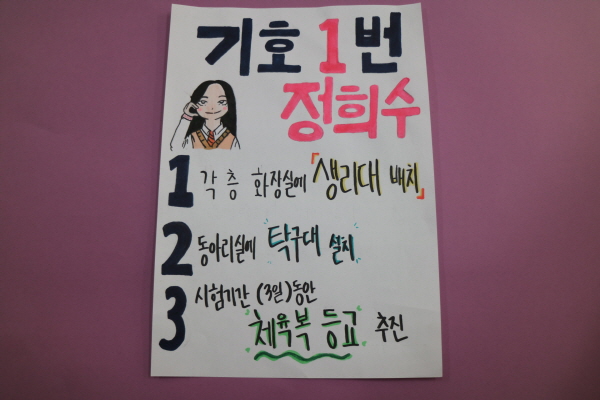 기호 1번
정희수
1 각 층 화장실에 「생리대 배치」
2 동아리실에 탁구대 설치
3 시험기간 (3일)동안
체육복 등교 추진